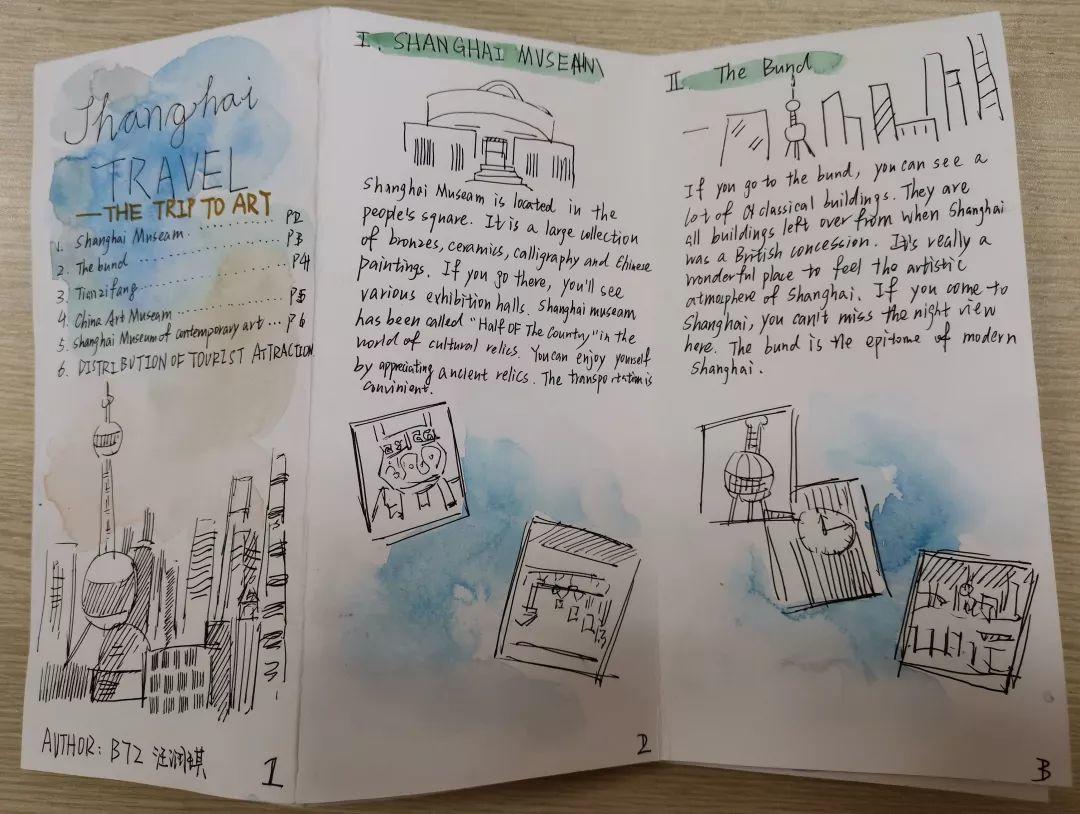 Shanghai
TRAVEL
—THE TRIP TO ART
1. Shanghai Museam ............ P2
2. The bund ............ P3
3. Tianzifang ............ P4
4. China Art Museam ............ P5
5. Shanghai Museum of contemporary art ... P6
6. DISTRIBUTION OF TOURIST ATTRACTION
AUTHOR: B72 汪润祺
1
I. SHANGHAI MUSEAM
Shanghai Museam is located in the
people's square. It is a large collection
of bronzes, ceramics, calligraphy and Chinese
paintings. If you go there, you'll see
various exhibition halls. Shanghai museam
has been called "Half OF The Country" in the
world of cultural relics. You can enjoy yourself
by appreciating ancient relics. The transportation is
convinient.
2
II. The Bund
If you go to the bund, you can see a
lot of classical buildings. They are
all buildings left over from when Shanghai
was a British concession. It's really a
wonderful place to feel the artistic
atmophere of Shanghai. If you come to
Shanghai, you can't miss the night view
here. The bund is the epitome of modern
Shanghai.
3